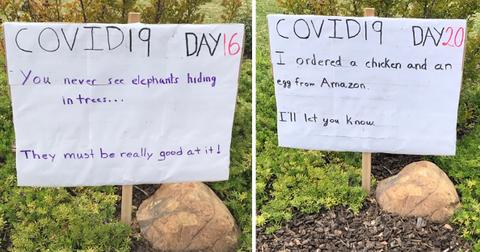 COVID19 DAY16
You never see elephants hiding
in trees...
They must be really good at it!
COVID19 DAY20
I ordered a chicken and an
egg from Amazon.
I'll let you know